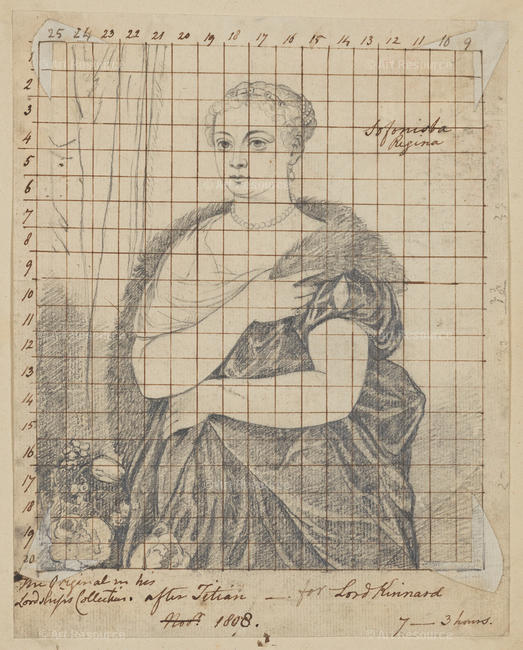 25 24 23 22 21 20 19 18 17 16 15 14 13 12 11 10 9
1
2
3
4
5
6
7
8
9
10
11
12
13
14
15
16
17
18
19
20
Sofonisba
Regina
The Original in his
Lordships Collection. after Titian — . for Lord Kinnard
1808.
7 — 3 hours.
© Art Resource